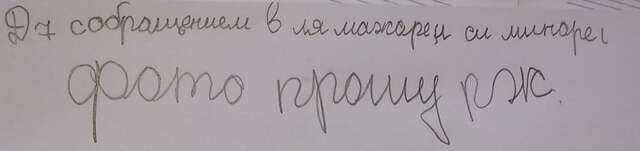 D7 с обращением в ля мажорец си минорец
фото прошу рж.